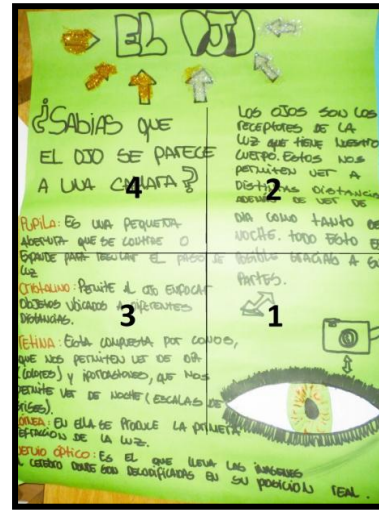 EL OJO
¿SABÍAS QUE
EL OJO SE PARECE
A UNA CAMARA?
4
LOS OJOS SON LOS
RECEPTORES DE LA
LUZ QUE TIENE NUESTRO
CUERPO. ESTOS NOS
PERMITEN VER A
DISTINTAS DISTANCIAS
ADEMÁS DE VER DE
DIA COMO TANTO DE
NOCHE. TODO ESTO ES
POSIBLE GRACIAS A SU
PARTES.
2
PUPILA: ES UNA PEQUEÑA
ABERTURA QUE SE CONTRAE O
EXPANDE PARA REGULAR EL PASO DE
LUZ
CRISTALINO: PERMITE AL OJO ENFOCAR
OBJETOS UBICADOS A DIFERENTES
DISTANCIAS.
3
RETINA: ESTA COMPUESTA POR CONOS,
QUE NOS PERMITEN VER DE DIA
(COLORES) Y QUE NOS
PERMITE VER DE NOCHE (ESCALAS DE
GRISES).
CORNEA: EN ELLA SE PRODUCE LA PRIMERA
DE LA LUZ.
NERVIO ÓPTICO: ES EL QUE LLEVA LAS IMAGENES
AL CEREBRO DONDE SON DECODIFICADAS EN SU POSICIÓN REAL.
1